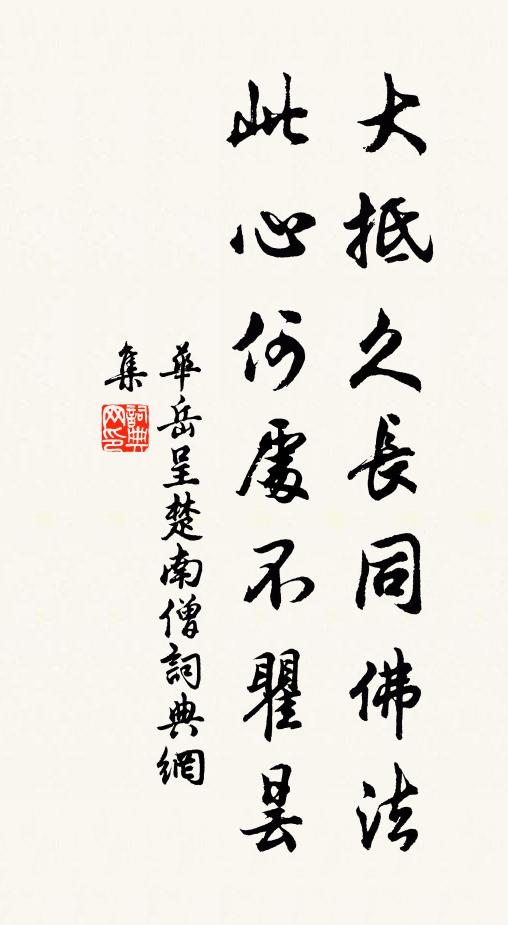 大抵久長同佛法
此心何處不瞿曇
華岳呈楚南僧詞典網
集
詞典
网印